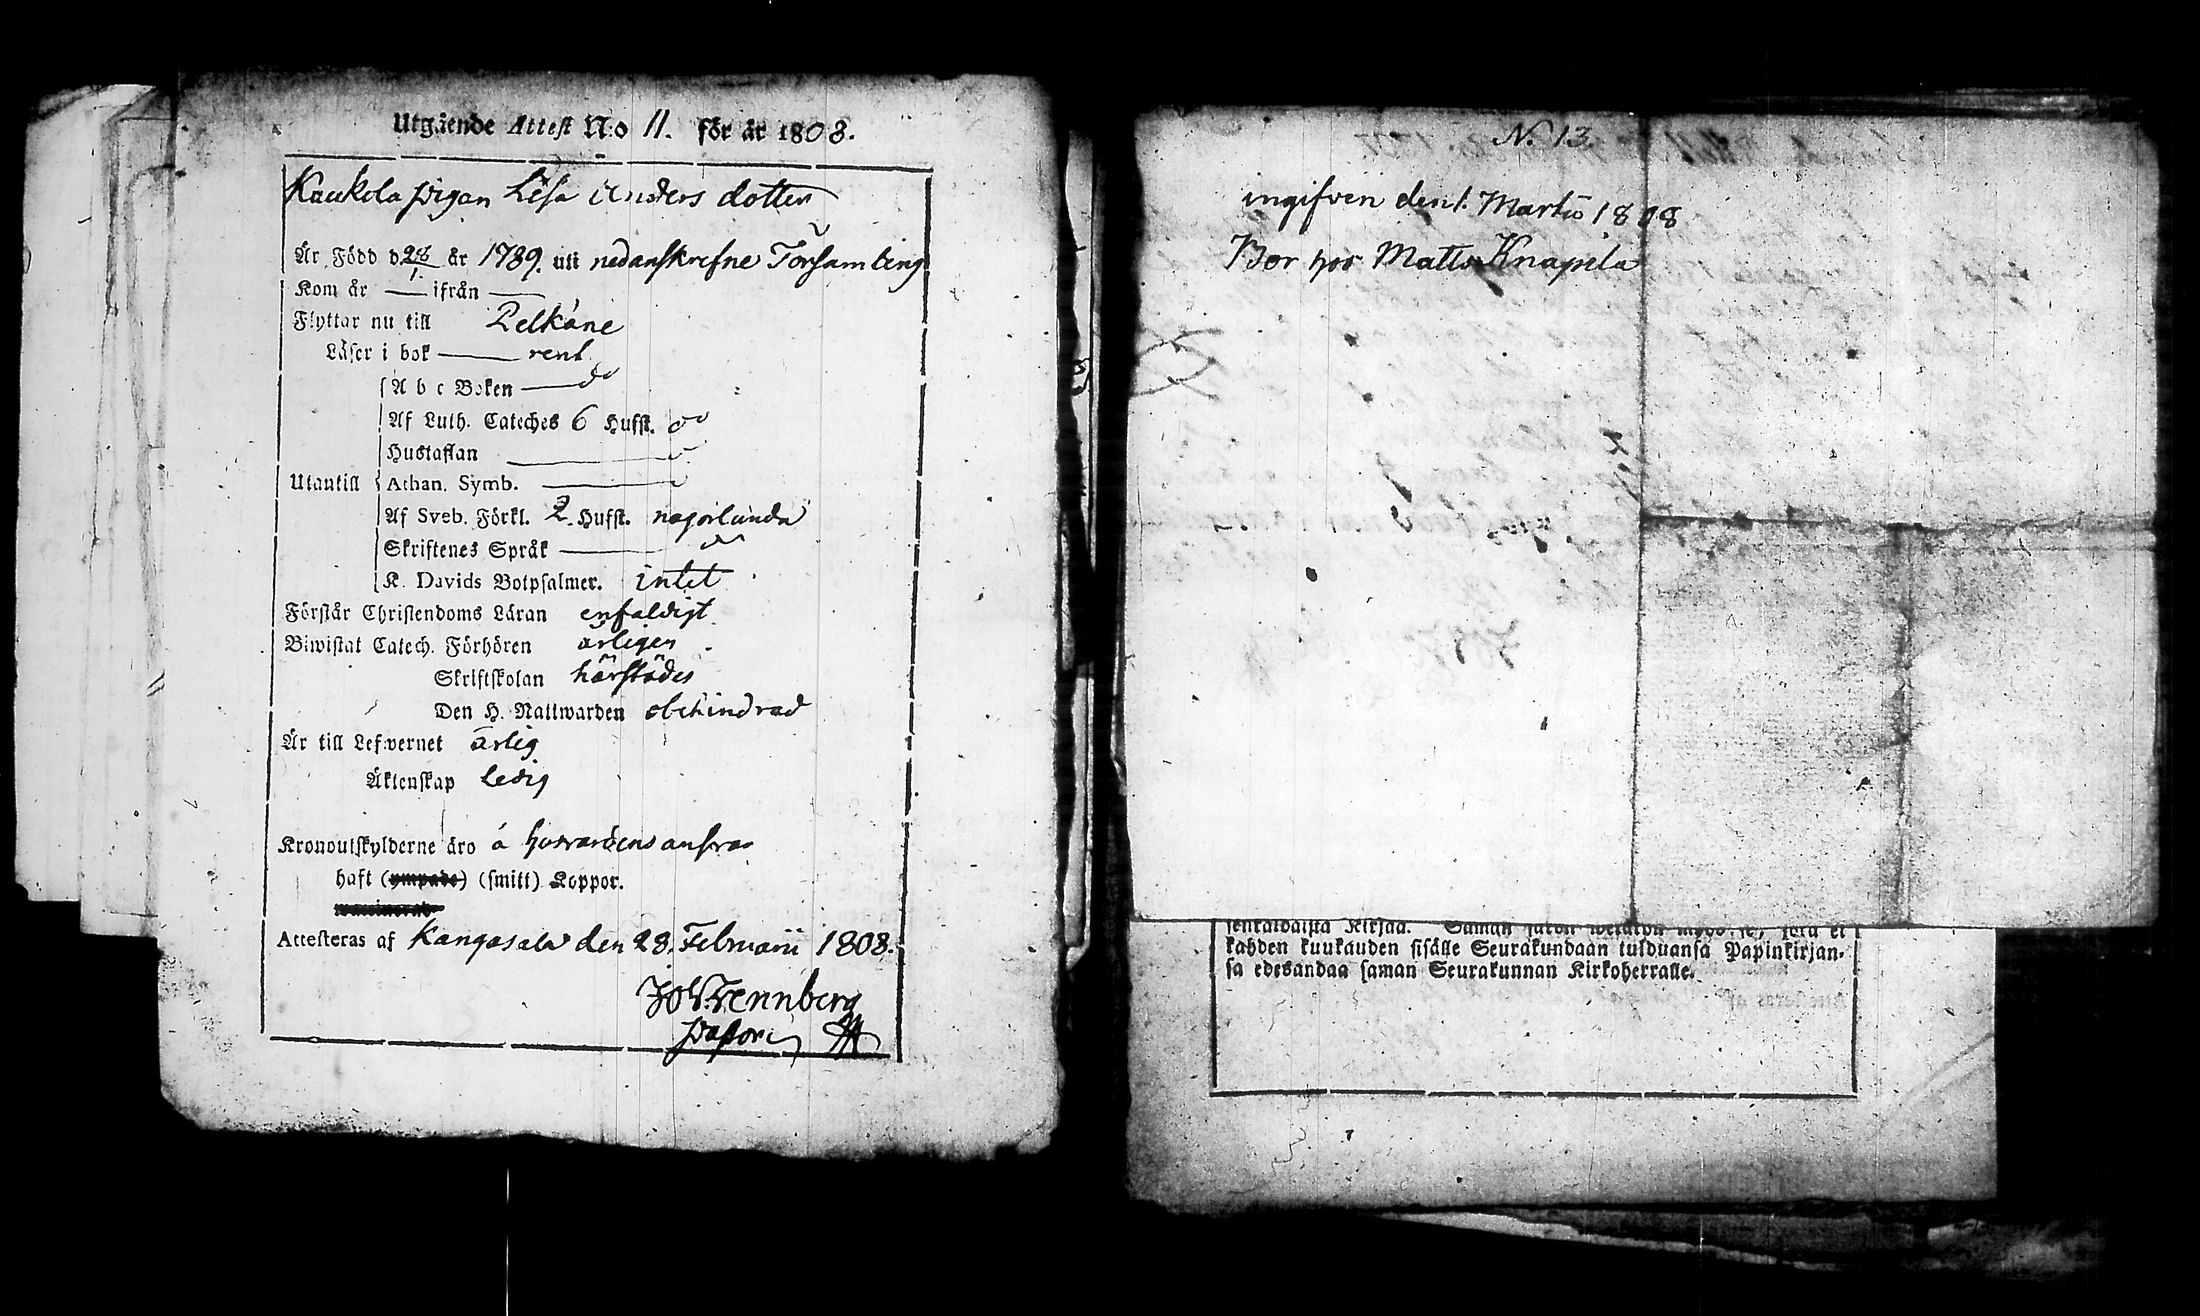 Utgående Attest N:o 11. för år 1808.
Kaukola pigan Lisa Anders dotter
Är Född d. 28/1 år 1789. uti nedanskrefne Församling
Kom år — ifrån —
Flyttar nu till Pelkäne
Läser i bok — rent
Utantill
A b c Boken — do
Af Luth. Cateches 6 Hufst. do
Hustaflan —
Athan. Symb. —
Af Sveb. Förkl. 2. Hufst. någorlunda
Skriftenes Språk — do
K. Davids Botpsalmer. intet
Förstår Christendoms Läran enfaldigt
Biwistat Catech. Förhören årligen
Skriftskolan härstädes
Den H. Nattwarden obehindrad
Är till Lefvernet ärlig
Äktenskap ledig
Kronoutskylderne äro å husbondens ansvar
haft (ympade) (smitt) Koppor.
Attesteras af Kangasala den 28. Februarii 1808.
Joh. Frennberg
pastor
N. 13.
ingifven den 1. Martii 1808
Bor hos Matts Knapila
senkaldaista Kirjaa. Saman
kahden kuukauden sisälle Seurakundaan tulduansa Papinkirjan-
sa edesandaa saman Seurakunnan Kirkoherralle.